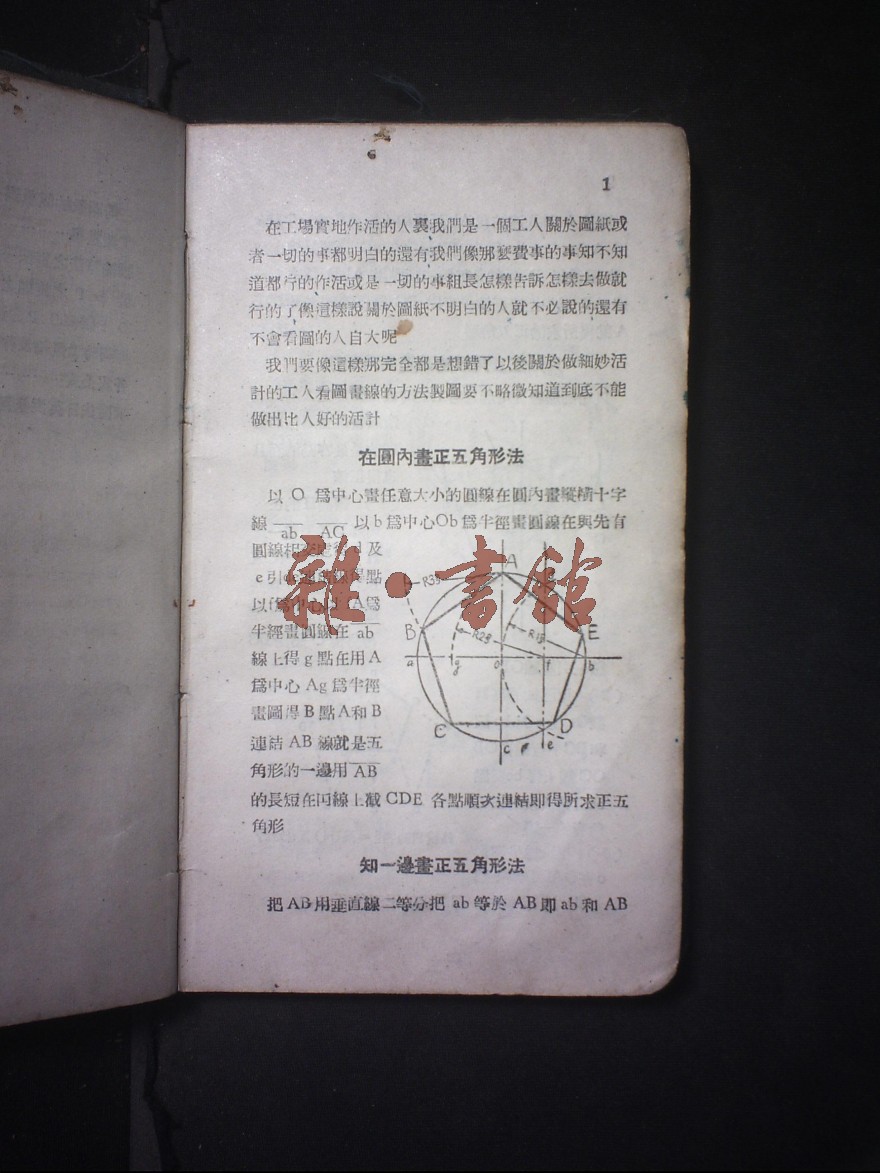 1
在工場實地作活的人裏我們是一個工人關於圖紙或
者一切的事都明白的還有我們像那麼費事的事知不知
道都行的作活或是一切的事組長怎樣告訴怎樣去做就
行的了像這樣說關於圖紙不明白的人就不必說的還有
不會看圖的人自大呢
我們要像這樣那完全都是想錯了以後關於做細妙活
計的工人看圖畫線的方法製圖要不略微知道到底不能
做出比人好的活計
在圓內畫正五角形法
以 O 爲中心畫任意大小的圓線在圓內畫縱橫十字
線 ab AC 以 b 爲中心Ob 爲半徑畫圓線在與先有
圓線相 d 及
e 引 點
以 f 爲中心 A爲
半經畫圓線在 ab
線上得 g 點在用 A
爲中心 Ag 爲半徑
畫圖得 B 點 A 和 B
連結 AB 線就是五
角形的一邊用 AB
的長短在円線上截 CDE 各點順次連結即得所求正五
角形
A
R3g
B
E
R2g
R1g
a
g
o
f
b
C
D
c
e
雜·書館
知一邊畫正五角形法
把 AB 用垂直線二等分把 ab 等於 AB 即 ab 和 AB